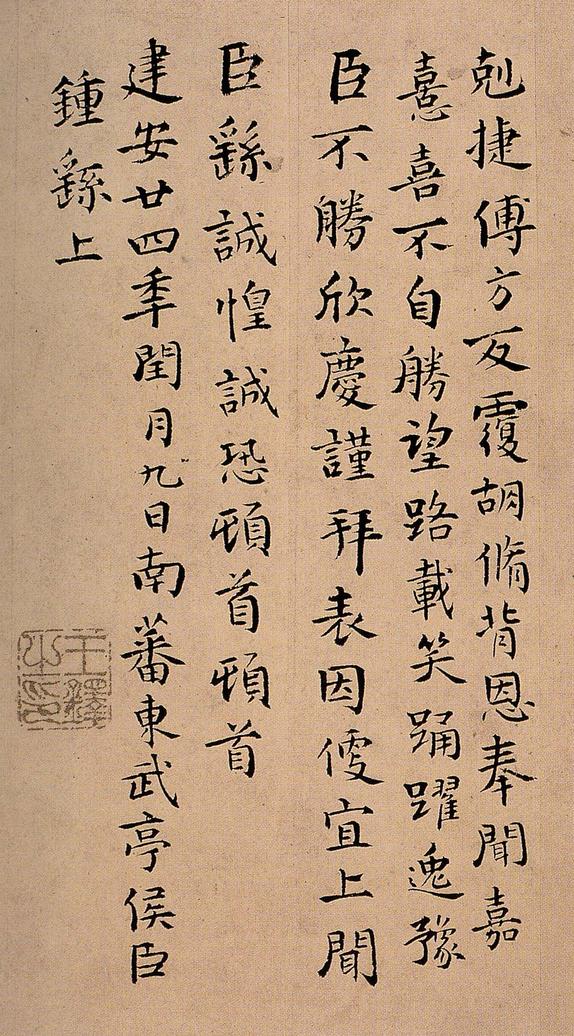 剋捷傅方反覆胡脩背恩奉聞嘉
憙喜不自勝望路載笑踊躍逸豫
臣不勝欣慶謹拜表因便宜上聞
臣繇誠惶誠恐頓首頓首
建安廿四年閏月九日南蕃東武亭侯臣
鍾繇上
王鐸之印